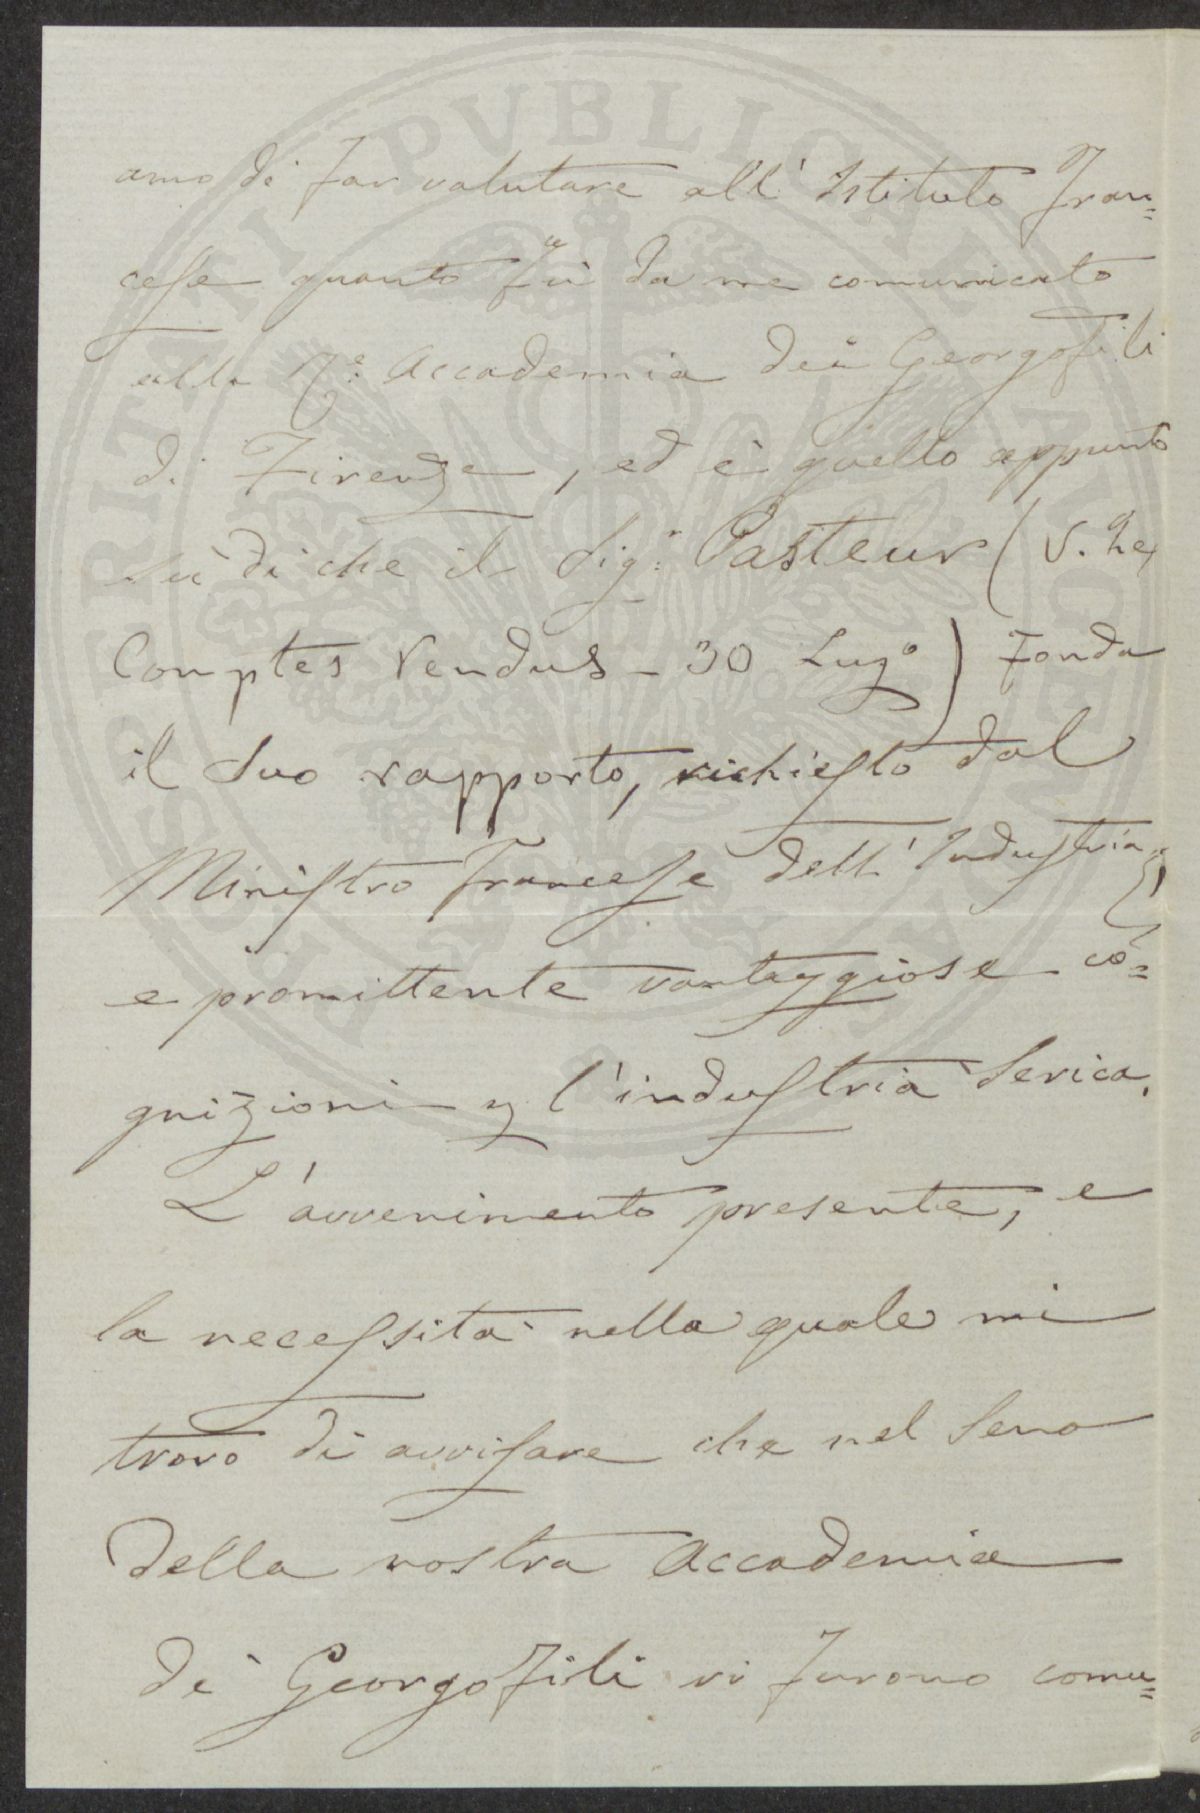 amo di far valutare all' Istituto Fran=
cese quanto fù da me comunicato
alla R.e Accademia dei Georgofili
di Firenze, ed è quello appunto
sù di che il Sig.r Pasteur (V. Les
Comptes Rendus - 30 Lug.o) fonda
il suo rapporto, richiesto dal
Ministro Francese dell' Industria,
e promittente vantaggiose co=
gnizioni p l'industria serica.
L'avvenimento presente, e
la necessità nella quale mi
trovo di avvisare che nel seno
della nostra Accademia
de' Georgofili vi furono comu=
PROSPERITATI PVBLICAE AVGENDAE